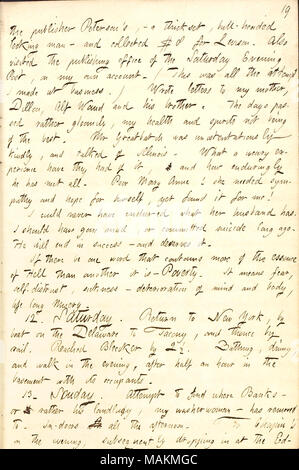 19
the publisher Peterson's, — a thick set, bull-headed
looking man — and collected $8 for Leeson. Also
visited the publishing office of the Saturday Evening
Post, on my own account. (This was all the attempt
I made at business.) Wrote letters to my mother,
Dillon, Alf Waud and his brother. The days pas-
sed rather gloomily, my health and spirits not being
of the best. Mr Greatbatch was unostentatiously
kindly, and talked of Illinois. What a weary ex-
perience have they had of it & how enduringly
he has met all. Poor Mary Anne! she needed sym-
pathy and hope for herself, yet found it for me!
I could never have endured what her husband has.
I should have gone mad, or committed suicide long ago.
He will end in success — and deserves it.
If there be one word that contains more of the essence
of Hell than another it is — Poverty. It means fear,
self-distrust, deterioration of mind and body,
life long misery.
12. Saturday. Return to New York, by
boat on the Delaware to Tacony, and thence by
rail. Reached Bleecker by 2½. Bathing, dining
and walk in the evening, after half an hour in the
basement with its occupants.
13. Sunday. Attempt to find where Banks —
or rather his landlady, my washerwoman — has removed
to. In-doors all the afternoon. To
in the evening, subsequently dropping in at the Ed-
alamy
Image ID: MAKMGC
www.alamy.com